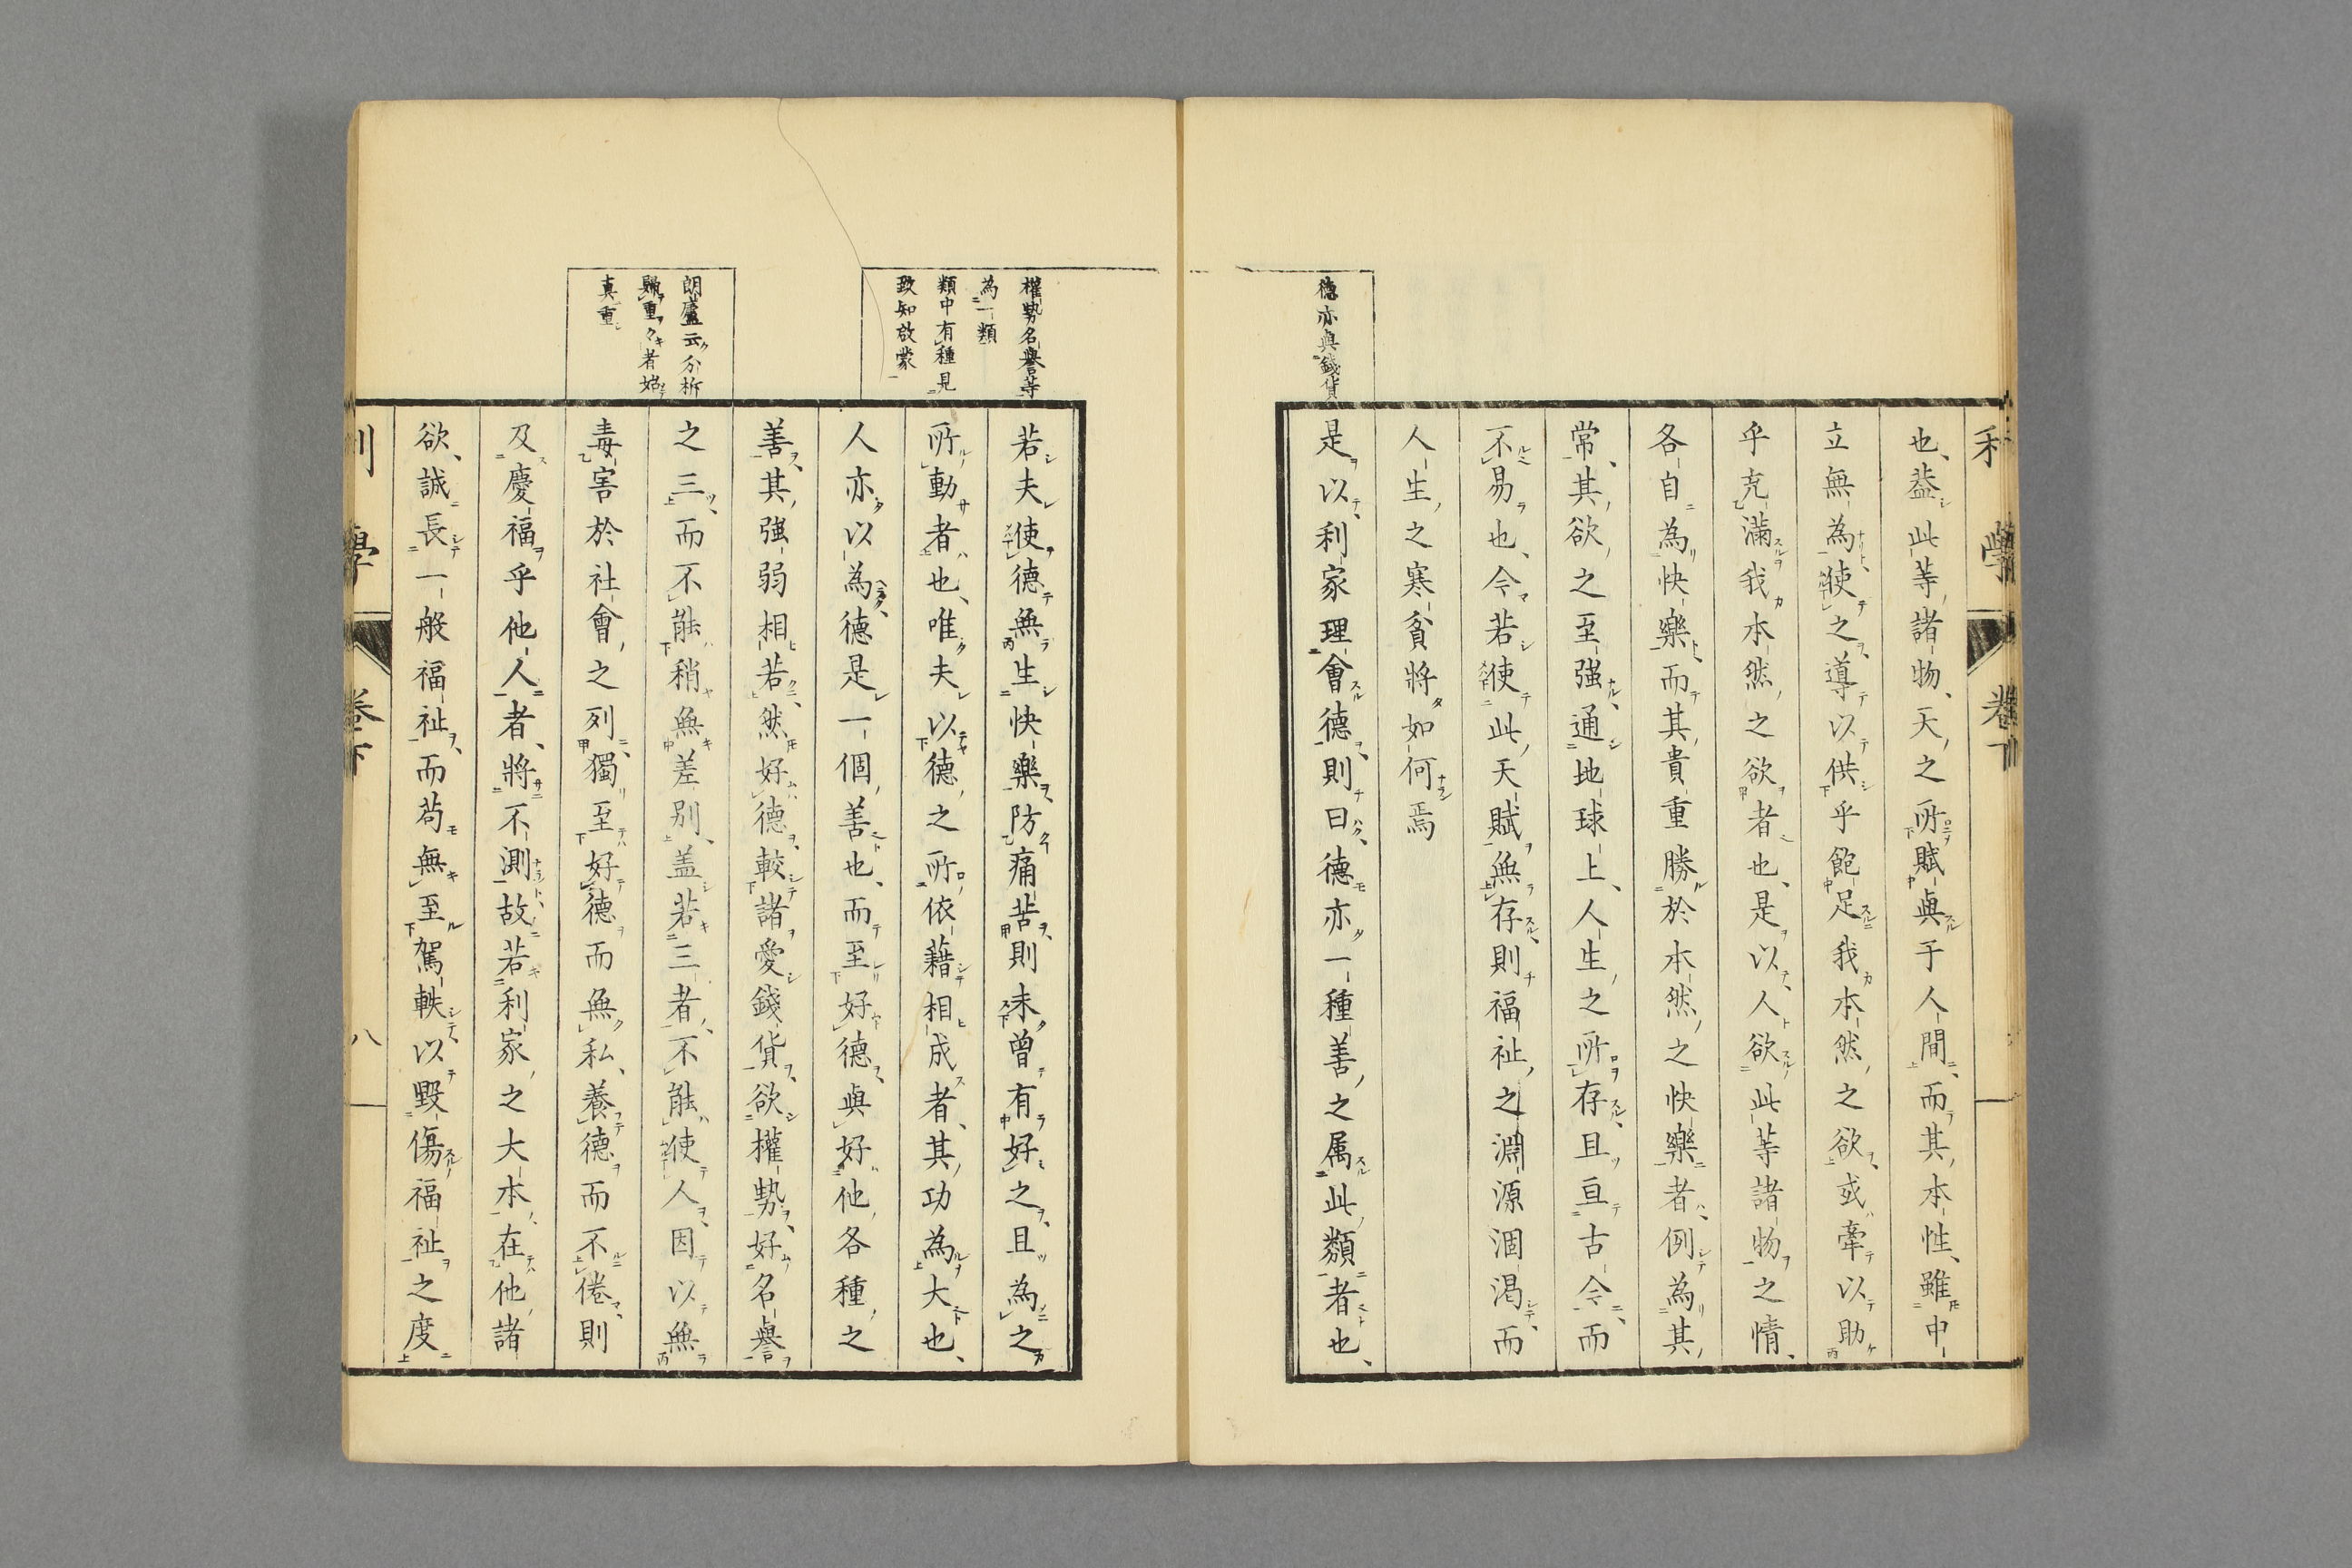 也、葢此等諸物、天之所賦與于人間、而其本性、雖中
立無為、使之導以供乎飽足我本然之欲、或牽以助
乎充滿我本然之欲者也、是以人欲此等諸物之情、
各自為快樂、而其貴重勝於本然之快樂者、例為其
常、其欲之至强、通地球上、人生之所存、且亘古今、而
不易也、今若使此天賦無存、則福祉之淵源涸渇、而
人生之寒貧將如何焉
德亦與錢貨
是以利家理會德、則曰、德亦一種善之属此類者也、
權勢名譽等
為一類
類中有種見
致知啟蒙
若夫使德無生快樂防痛苦、則未曾有好之、且為之
所動者也、唯夫以德之所依藉相成者、其功為大也、
人亦以為德是一個善也、而至好德與好他各種之
善、其强弱相若、然好德、較諸愛錢貨、欲權勢、好名譽
之三、而不能稍無差别、盖若三者、不能使人因以無
朗廬云分析
重者始
真重
毒害於社會之列、獨至好德而無私、養德而不倦、則
及慶福乎他人者、將不測、故若利家之大本、在他諸
欲、誠長一般福祉、而苟無至駕軼以毀傷福祉之度
利學 卷下 八
學 卷下